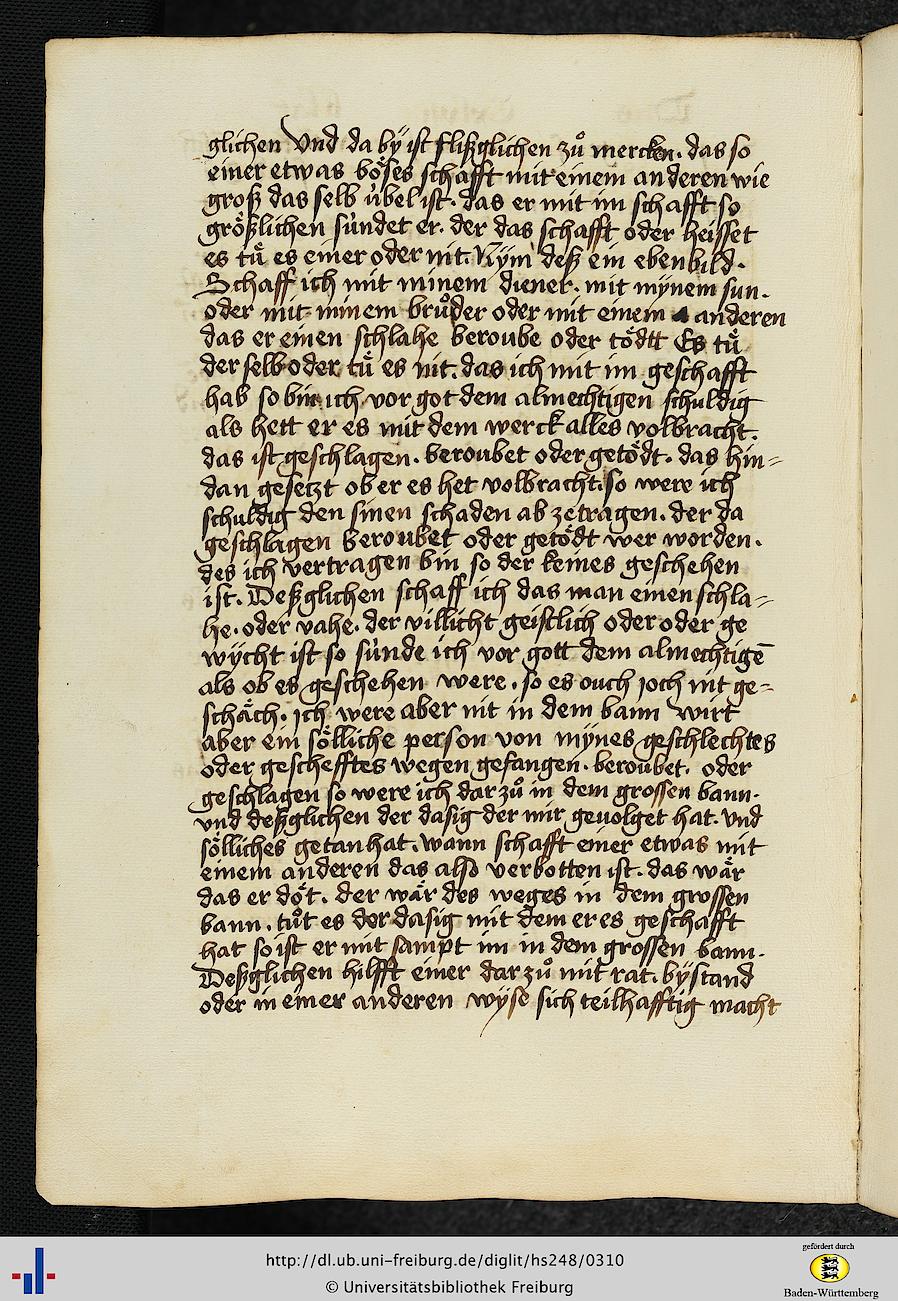 glichen Vnd da bÿ ist flißglichen zů mercken. das so
einer etwas böses schafft mit einem anderen wie
groß das selb übel ist. das er mit im schafft so
größlichen sündet er. der das schafft oder heisset
es tů es einer oder nit. Nÿm deß ein ebenbild.
Schaff ich mit minem diener. mit mÿnem sun.
oder mit minem brůder oder mit einem anderen
das er einen schlahe beroube oder tödtt Es tů
der selb oder tů es nit. das ich mit im geschafft
hab so bin ich vor got dem almechtigen schuldig
als hett er es mit dem werck alles volbracht.
das ist geschlagen. beroubet oder getödt. das hin-
dan gesetzt ob er es het volbracht. so were ich
schuldig den sinen schaden ab zetragen. der da
geschlagen beroubet oder getödt wer worden.
des ich vertragen bin so der keines geschehen
ist. Deßglichen schaff ich das man einen schla-
he. oder vahe. der villicht geistlich oder oder ge
wÿcht ist so sünde ich vor gott dem almechtigē
als ob es geschehen were. so es ouch joch nit ge-
schäch. ich were aber nit in dem bann wirt
aber ein sölliche person von mÿnes geschlechtes
oder geschefftes wegen gefangen. beroubet. oder
geschlagen so were ich dar zů in dem grossen bann.
vnd deßglichen der dasig der mir geuolget hat. vnd
sölliches getan hat. wann schafft einer etwas mit
einem anderen das also verbotten ist. das wär
das er döt. der wär des weges in dem grossen
bann. tůt es der dasig mit dem er es geschafft
hat so ist er mit sampt im in dem grossen bann.
Deßglichen hilfft einer dar zů mit rat. bÿstand
oder in einer anderen wÿse sich teilhafftig macht
http://dl.ub.uni-freiburg.de/diglit/hs248/0310
© Universitätsbibliothek Freiburg
gefördert durch
Baden-Württemberg